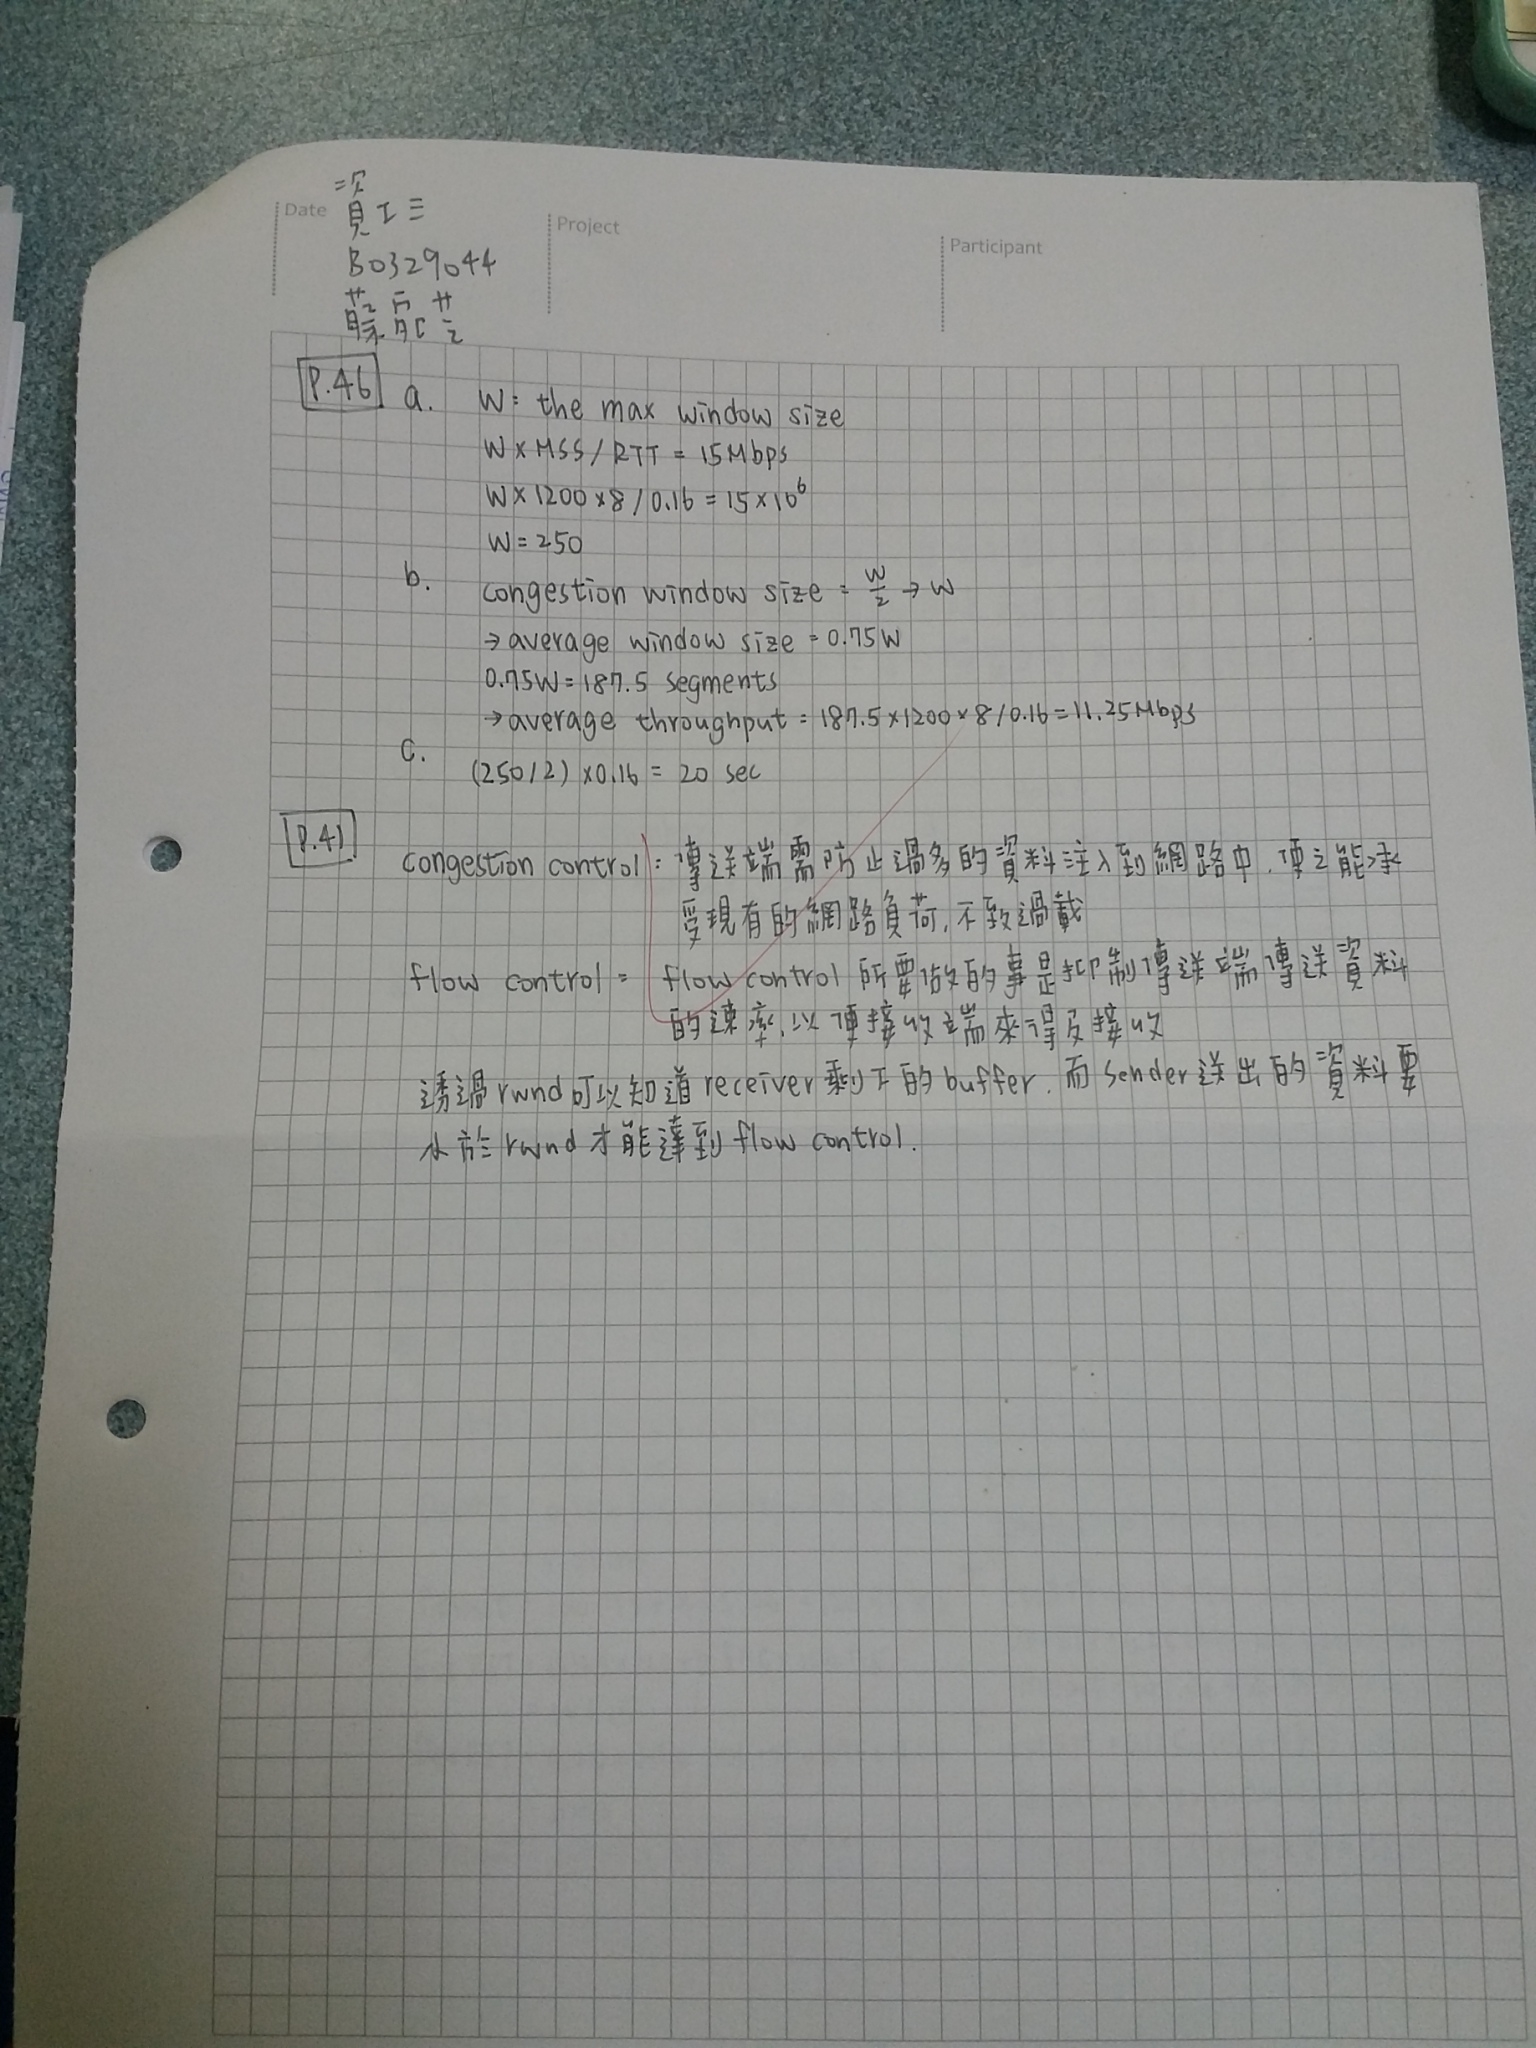 Date
Project
Participant
資工三
B0329044
P.46 a. W: the max window size
W×MSS/RTT = 15Mbps
W×1200×8/0.16 = 15×10⁶
W=250
b. congestion window size = W/2 → W
→ average window size = 0.75W
0.75W = 187.5 segments
→ average throughput = 187.5×1200×8/0.16 = 11.25Mbps
c. (250/2)×0.16 = 20 sec
P.41 congestion control: 傳送端需防止過多的資料注入到網路中,使之能承
受現有的網路負荷,不致過載
flow control = flow control所要做的事是抑制傳送端傳送資料
的速率,以便接收端來得及接收
透過rwnd可以知道receiver剩下的buffer,而sender送出的資料要
小於rwnd才能達到flow control.